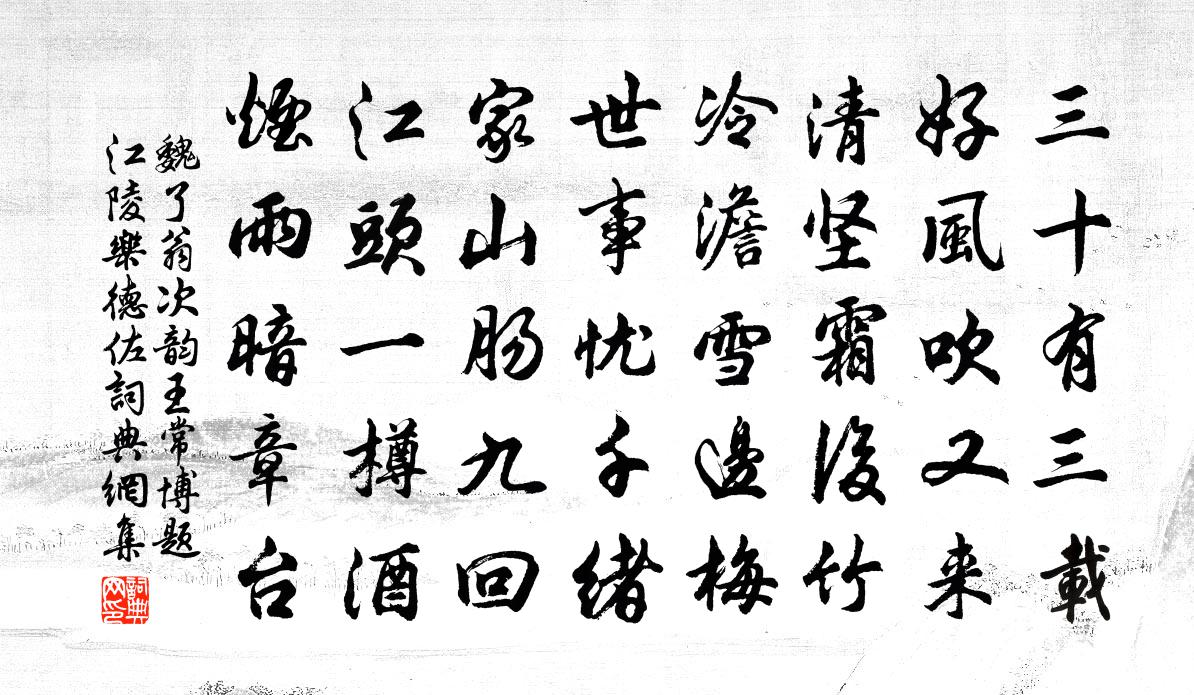 三十有三載
好風吹又来
清坚霜後竹
冷澹雪邊梅
世事忧千緒
家山肠九回
江頭一樽酒
煙雨暗章台
魏了翁次韵王常博题
江陵樂德佐詞典網集
詞典
网印